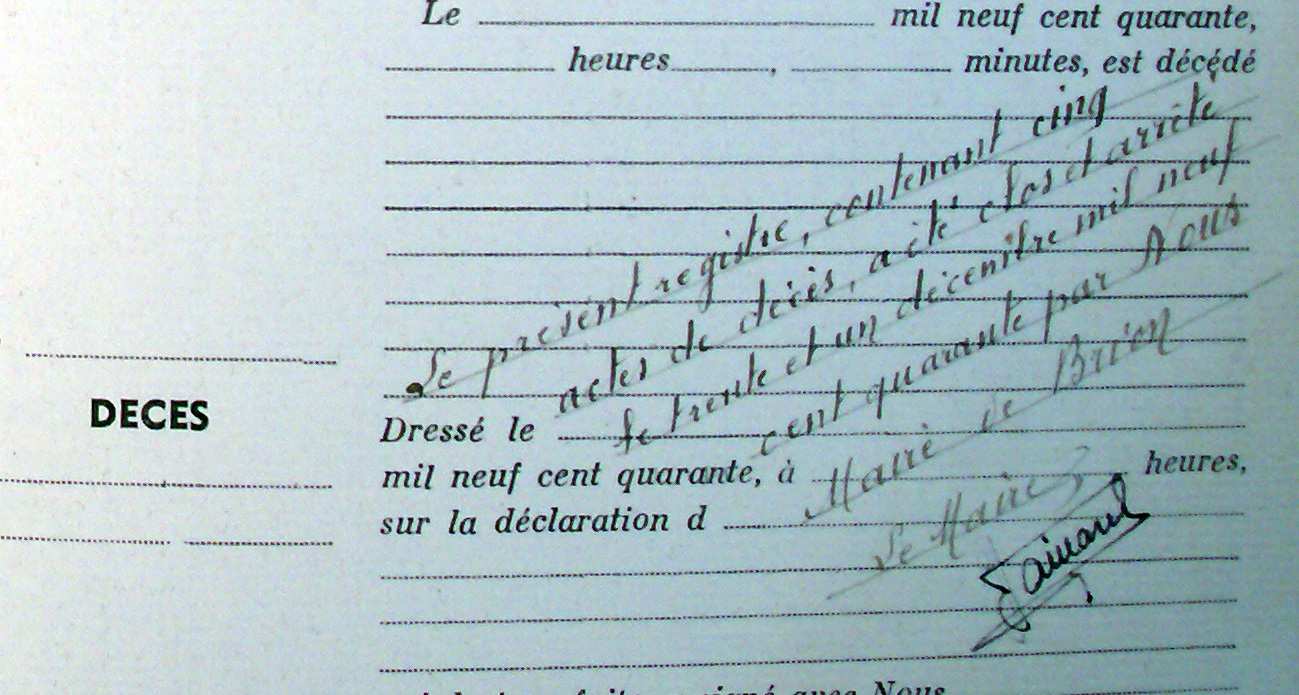 Le mil neuf cent quarante,
heures , minutes, est décédé
Le présent registre, contenant cinq
actes de décès, a été clos et arrêté
le trente et un décembre mil neuf
cent quarante par Nous
Maire de Brion
Le Maire,
DECES
Dressé le
mil neuf cent quarante, à heures,
sur la déclaration d
avec Nous